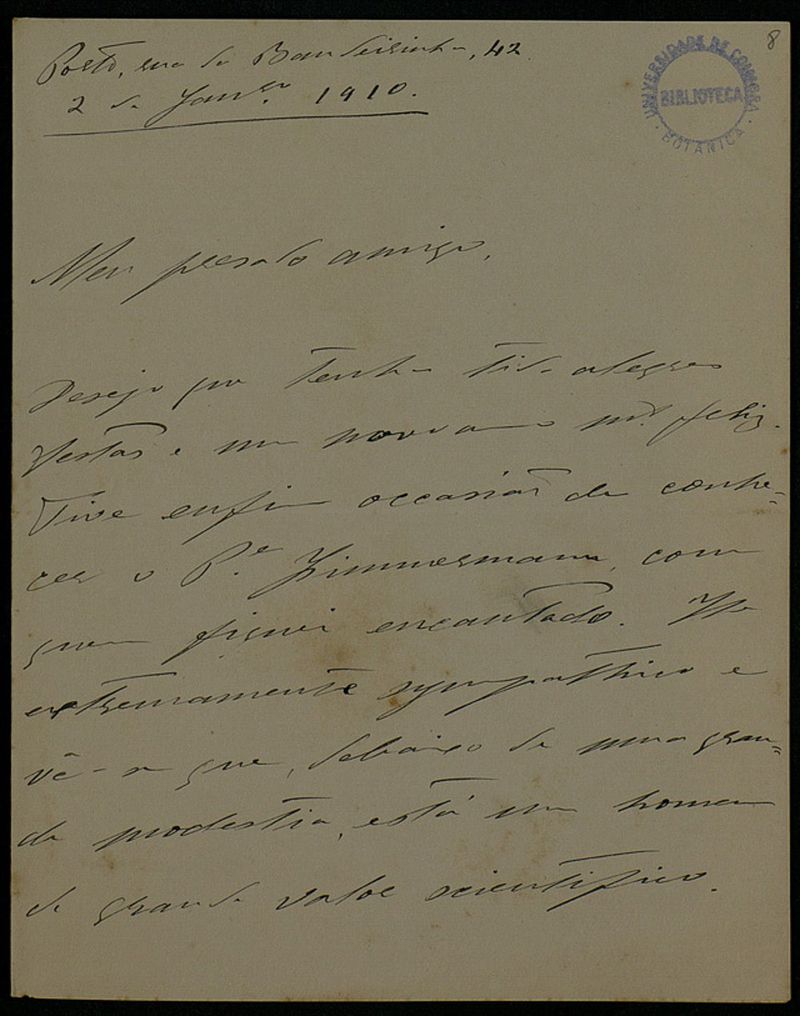 Porto, rua da Bandeirinha, 42
2 de Janrº 1910.
8
UNIVERSIDADE DE COIMBRA
BIBLIOTECA
BOTANICA
Meu presado amigo,
Desejo que tenha tido alegres
festas e um novo anno mt. feliz.
Tive enfim occasião de conhe-
cer o P.e Zimmermann, com
quem fiquei encantado. He
extremamente sympathico e
vê-se que, debaixo de uma gran-
de modestia, está um homem
de grande valor scientifico.